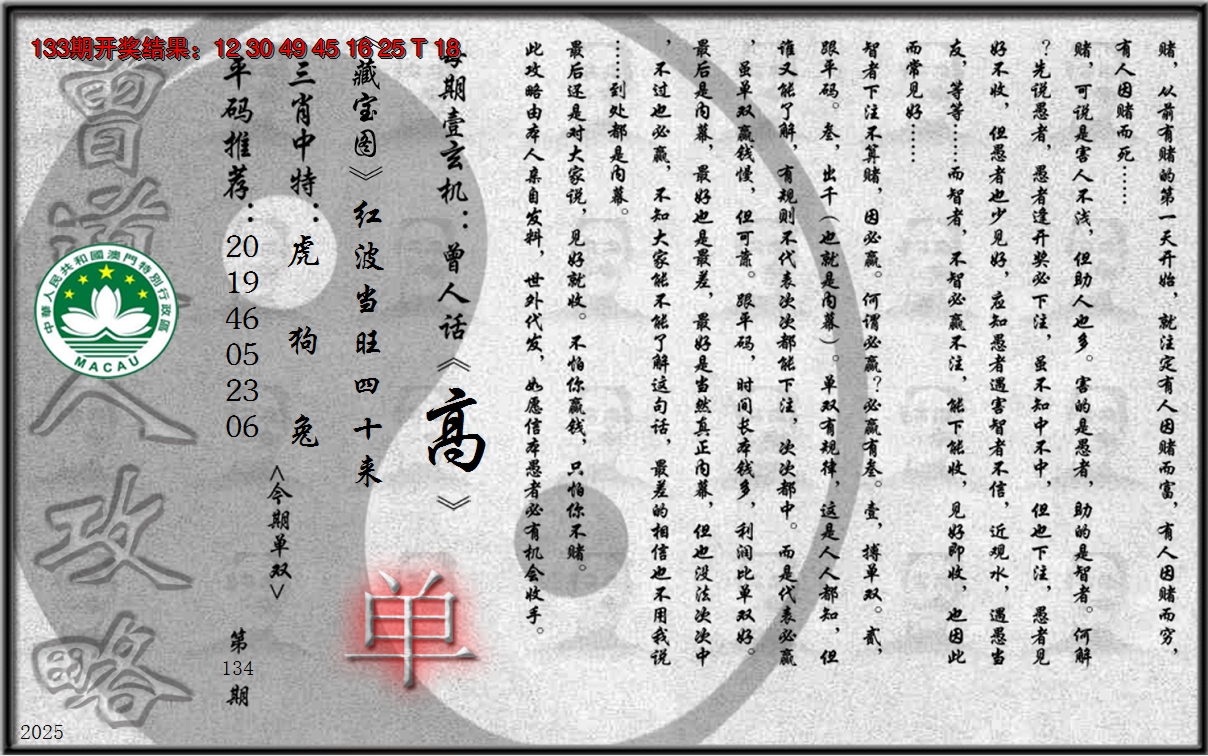 133期开奖结果：12 30 49 45 16 25 T 18
赌，从前有赌的第一天开始，就注定有人因赌而富，有人因赌而穷，
有人因赌而死……
赌，可说是害人不浅，但助人也多。害的是愚者，助的是智者。何解
？先说愚者，愚者逢开奖必下注，虽不知中不中，但也下注，愚者见
好不收，但愚者也少见好，应知愚者遇害智者不信，近观水，遇愚当
友，等等……而智者，不智必赢不注，能下能收，见好即收，也因此
而常见好……
智者下注不算赌，因必赢。何谓必赢？必赢有叁。壹，搏单双。贰，
跟平码。叁，出千（也就是内幕）。单双有规律，这是人人都知，但
谁又能了解，有规则不代表次次都能下注，次次都中。而是代表必赢
，虽单双赢钱慢，但可靠。跟平码，时间长本钱多，利润比单双好。
最后是内幕，最好也是最差，最好是当然真正内幕，但也没法次次中
，不过也必赢，不知大家能不能了解这句话，最差的相信也不用我说
……到处都是内幕。
最后还是对大家说，见好就收。不怕你赢钱，只怕你不赌。
此攻略由本人亲自发料，世外代发，如愿信本愚者必有机会收手。
每期壹玄机：曾人话《高》
《藏宝图》红波当旺四十来
三肖中特：虎 狗 兔
<今期单双>
单
平码推荐：20 19 46 05 23 06
第134期
曾道人攻略
中華人民共和國澳門特別行政區
MACAU
2025